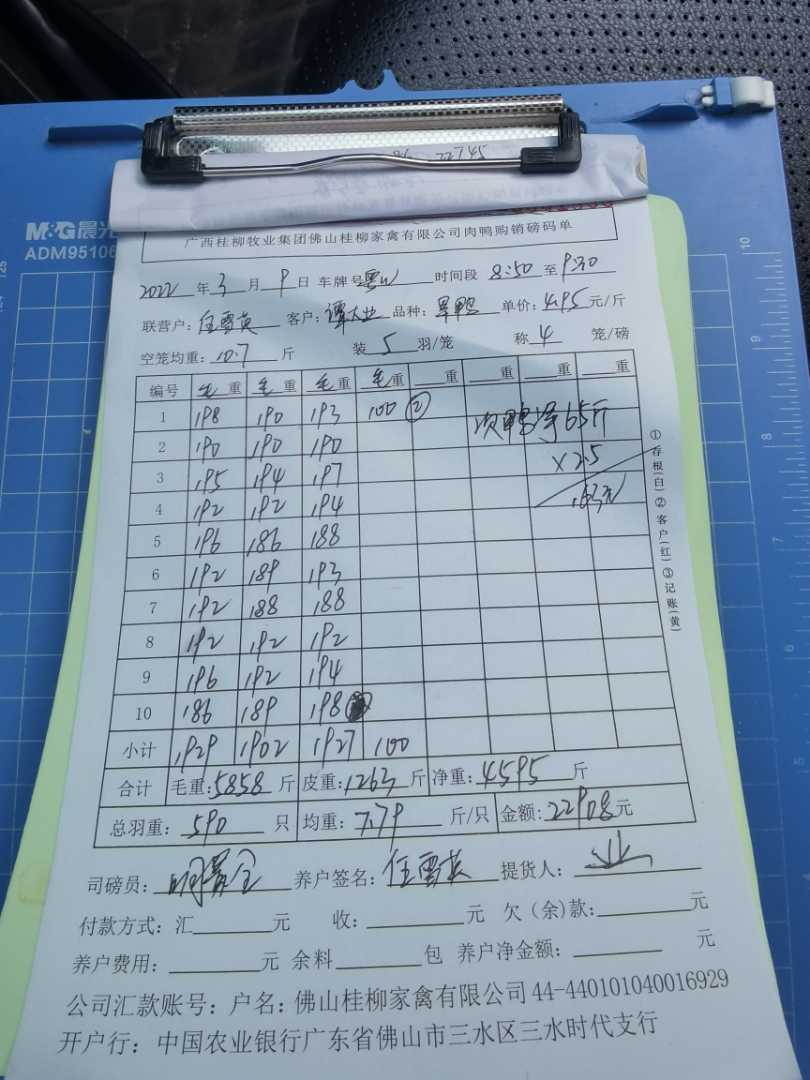 22745
M&G 晨光
ADM9510
广西桂柳牧业集团佛山桂柳家禽有限公司肉鸭购销磅码单
2022 年 3 月 9 日 车牌号 时间段 8:50 至 9:30
联营户: 任雪英 客户: 谭大业 品种: 单价: 4.95 元/斤
空笼均重: 10.7 斤 装 5 羽/笼 称 4 笼/磅
编号 毛重 毛重 毛重 毛重 重 重 重 重
1 198 190 193 100 ② 次鸭净65斤
2 190 190 190 ×2.5
3 195 194 197 163元
4 192 192 194
5 196 186 188
6 192 189 193
7 192 188 188
8 192 192 192
9 196 192 194
10 186 189 198
小计 1929 1902 1927 100
合计 毛重: 5858 斤 皮重: 1263 斤 净重: 4595 斤
总羽重: 590 只 均重: 7.79 斤/只 金额: 22908 元
①存根(白)②客户(红)③记账(黄)
司磅员: 养户签名: 任雪英 提货人: 业
付款方式: 汇 元 收: 元 欠(余)款: 元
养户费用: 元 余料 包 养户净金额: 元
公司汇款账号: 户名: 佛山桂柳家禽有限公司 44-440101040016929
开户行: 中国农业银行广东省佛山市三水区三水时代支行